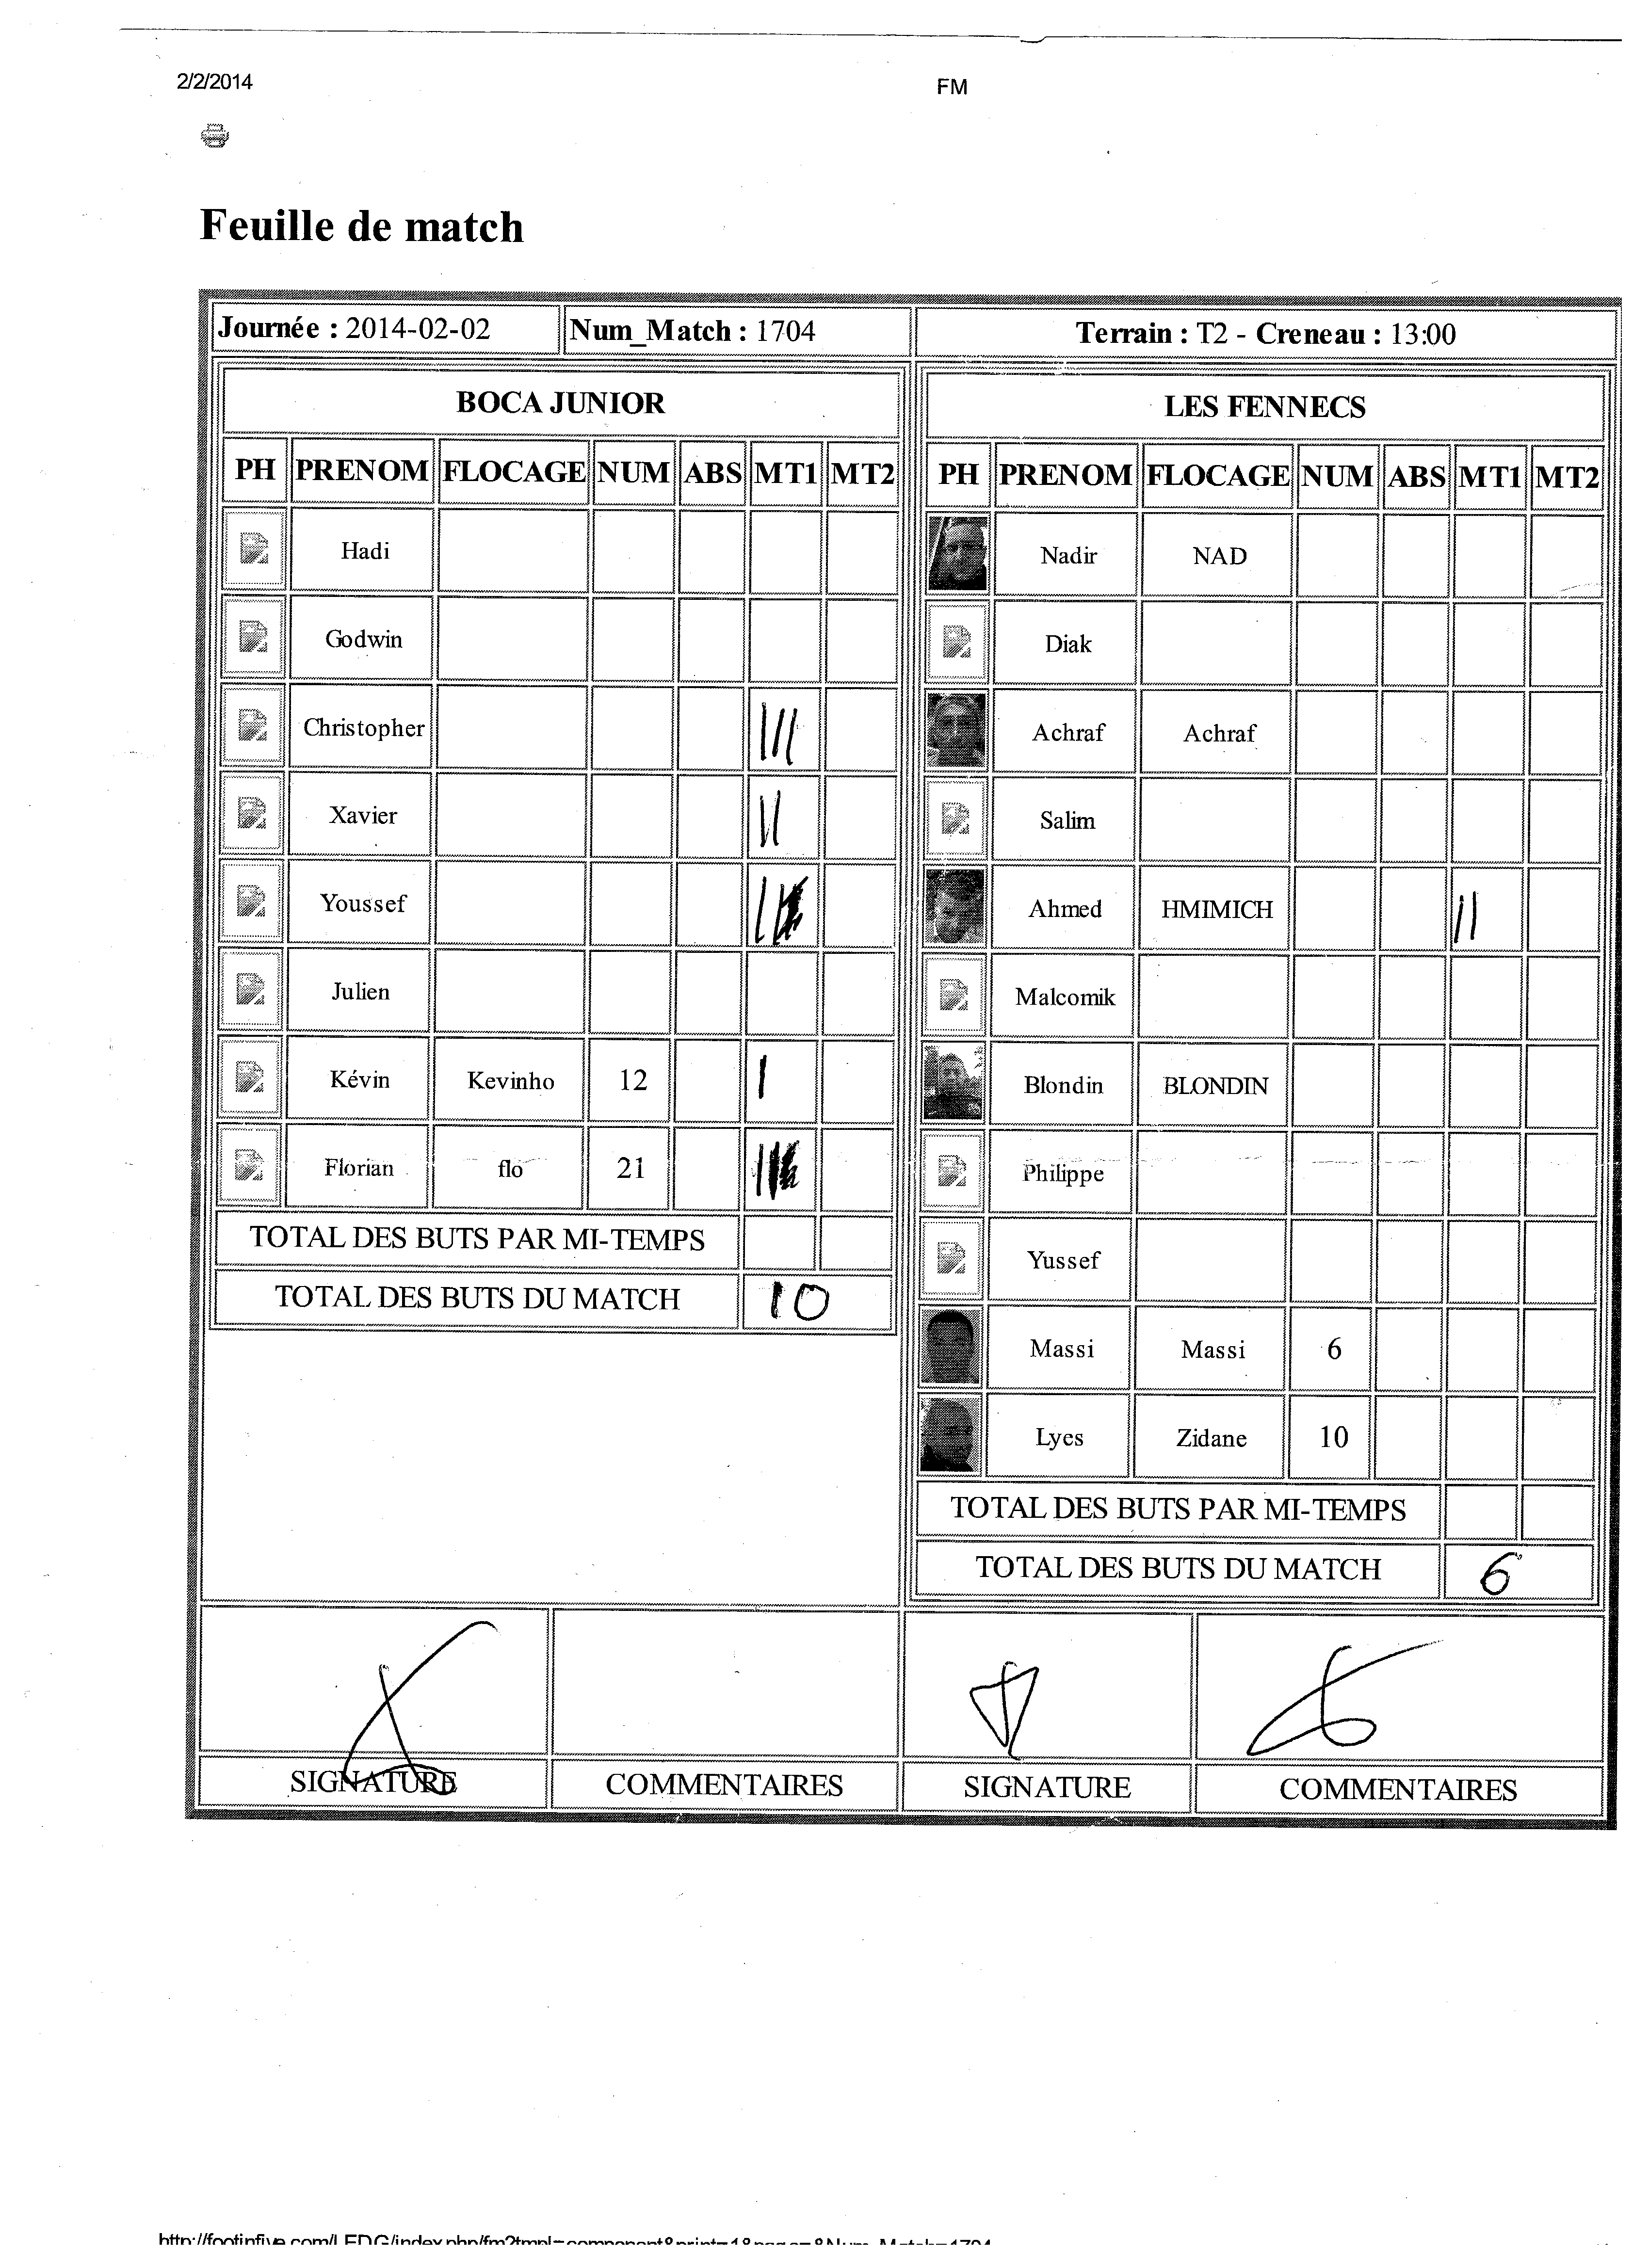 2/2/2014 FM
Feuille de match
Journée : 2014-02-02 Num_Match : 1704 Terrain : T2 - Creneau : 13:00
BOCA JUNIOR
PH PRENOM FLOCAGE NUM ABS MT1 MT2
Hadi
Godwin
Christopher |||
Xavier ||
Youssef
Julien
Kévin Kevinho 12 |
Florian flo 21
TOTAL DES BUTS PAR MI-TEMPS
TOTAL DES BUTS DU MATCH 10
LES FENNECS
PH PRENOM FLOCAGE NUM ABS MT1 MT2
Nadir NAD
Diak
Achraf Achraf
Salim
Ahmed HMIMICH ||
Malcomik
Blondin BLONDIN
Philippe
Yussef
Massi Massi 6
Lyes Zidane 10
TOTAL DES BUTS PAR MI-TEMPS
TOTAL DES BUTS DU MATCH 6
SIGNATURE COMMENTAIRES SIGNATURE COMMENTAIRES
http://footinfive.com/LEDG/index.php/fm?tmpl=component&print=1&page=&Num_Match=1704